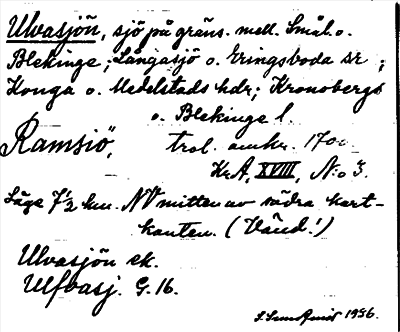 Ulvasjön, sjö på gräns. mell. Smål. o.
Blekinge; Långasjö o. Eringsboda sr;
Konga o. Medelstads hdr; Kronobergs
o. Blekinge l.
Ramsiö, trol. omkr. 1700
KrA, XVIII, N:o 3.
Läge 7½ km. NV mitten av södra kart-
kanten. (Vänd!)
Ulvasjön ek.
Ulfvasj. G. 16.
1936.